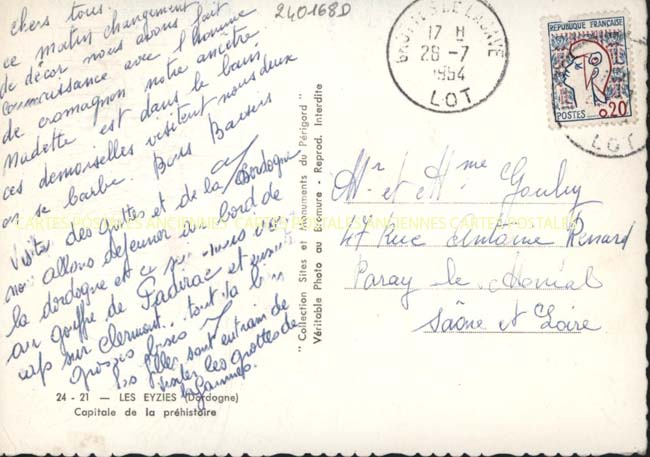 chers tous.
ce matin changement
de décor nous avons fait
connaissance avec l'homme
de cromagnon notre ancêtre
Madette est dans le bain
ces demoiselles visitent nous deux
on se barbe. Bons Baisers
Visite des grottes et de la Dordogne
nous allons déjeuner au bord de
la dordogne et ce
au gouffre de Padirac et
cap sur Clermont.. tout va bien
grosses bises
les filles sont entrain de
visiter les grottes de
24 - 21 — LES EYZIES (Dordogne)
Capitale de la préhistoire
" Collection Sites et Monuments du Périgord "
Véritable Photo au Bromure - Reprod. Interdite
240168D
GROTTES DE LACAVE
17 H
28 - 7
1964
LOT
REPUBLIQUE FRANÇAISE
POSTES
0,20
LOT
Mr et Mme Gouby
47 Rue Antoine Renard
Paray le Monial
Saône et Loire
CARTES POSTALES ANCIENNES CARTES POSTALES ANCIENNES CARTES POSTALES